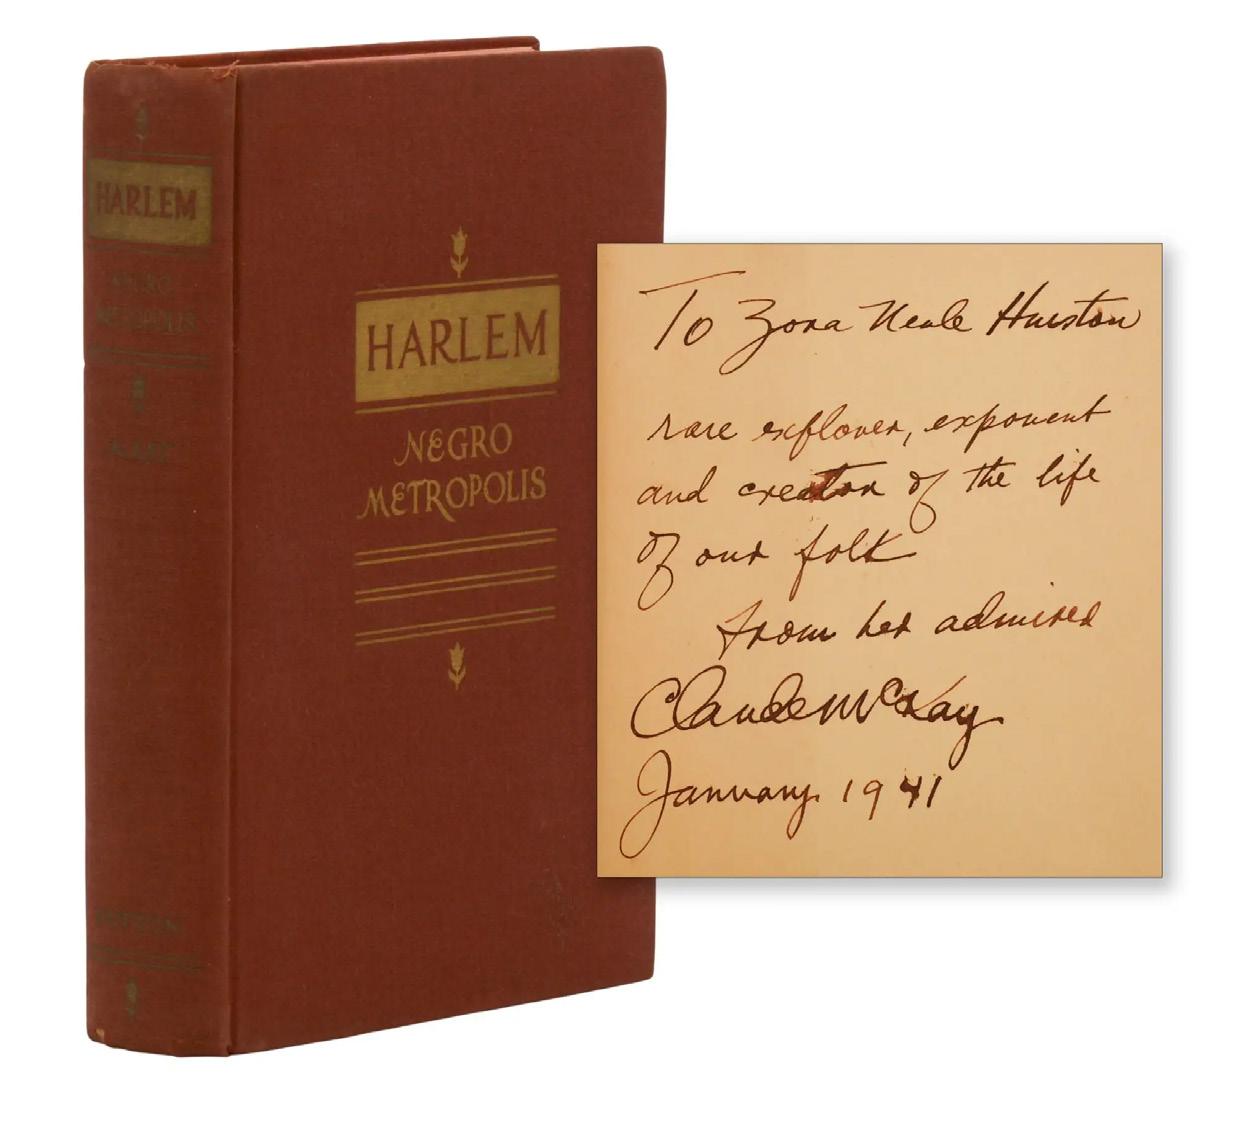 HARLEM
NEGRO
METROPOLIS
McKAY
DUTTON
HARLEM
NEGRO
METROPOLIS
To Zora Neale Hurston
rare explorer, exponent
and creator of the life
of our folk
from her admirer
Claude McKay
January 1941